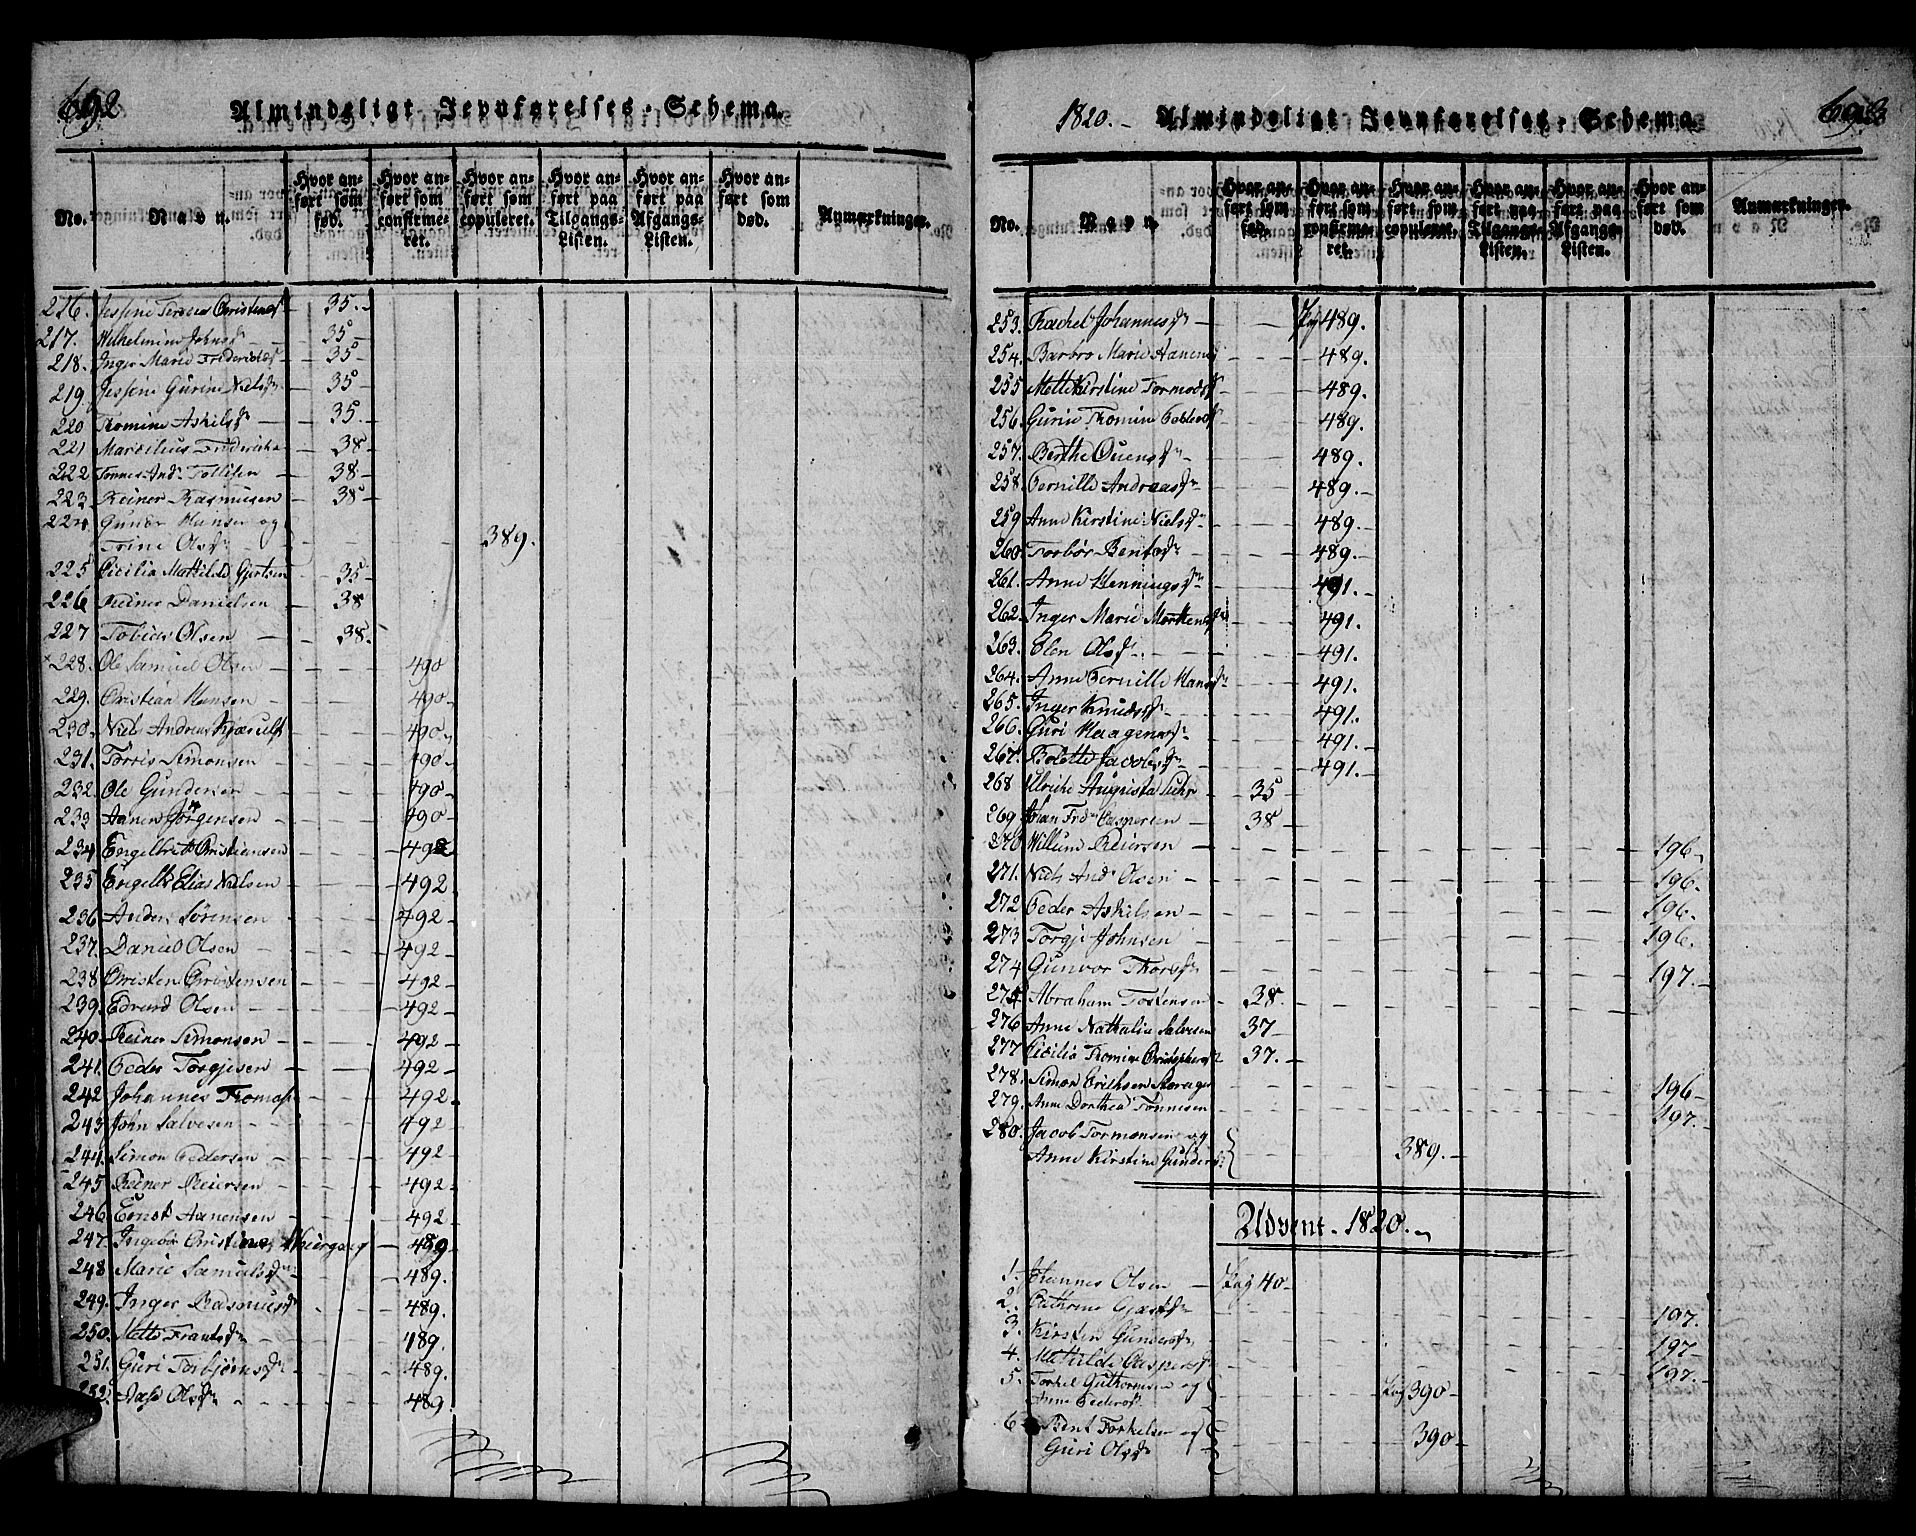 692
Almindeligt Jevnførelses-Schema.
No. Navn. Hvor anført som fød. Hvor anført som confirmeret. Hvor anført som copuleret. Hvor anført paa Tilgangs-Listen. Hvor anført paa Afgangs-Listen. Hvor anført som død. Anmærkninger.
216. Jessine Christens 35.
217. Wilhelmine Johnsd 35
218. Inger Marie Fredericksd 35
219. Jessine Gurine Nielsdr 35
220 Thomine Askilsd 35.
221 Marcelius Fredericks 38
222 Tønnes Andr. Tollisen 38
223 Reiner Rasmussen 38
224 Gunder Hansen og
Trine Olsdr 389.
225 Cicilia Mathilde Gjertsen 35
226 Reiner Danielsen 38
227 Tobias Olsen 38.
228. Ole Samuel Olsen 490
229. Christian Hansen 490
230. Niels Andreas Kjærulf 490
231. Torris Simonsen 490
232. Ole Gundersen 490
233. Aanen Jørgensen 490
234 Engelbret Christensen 492
235 Engelbr Elias Nielsen 492
236 Anders Sørensen 492
237. Daniel Olsen 492
238 Christen Christensen 492
239. Edvard Olsen 492
240. Reiner Simonsen 492
241. Peder Torgjesen 492
242 Johannes Thomas 492
243 John Salvesen 492
244. Simon Pedersen 492
245 Reiner Reiersen 492
246. Ernst Aanensen 492
247. Ingebor Christine 489
248 Marie Samuelsdr 489.
249. Inger Rasmusd 489.
250. Mette Frantsdr 489.
251. Guri Torbjørnsdr 489.
252. Aase Olsdr 489.
1820.
Almindeligt Jevnførelses-Schema.
693
No. Navn. Hvor anført som fød. Hvor anført som confirmeret. Hvor anført som copuleret. Hvor anført paa Tilgangs-Listen. Hvor anført paa Afgangs-Listen. Hvor anført som død. Anmærkninger.
253. Rachel Johannesdr Pag 489.
254. Barbro Marie Aanens 489.
255 Mette Kirstine Tormodsd 489.
256. Gurine Thomine Pedersd 489.
257. Berthe Ouensdr 489.
258. Pernille Andreasdr 489.
259 Anne Kirstine Nielsdr 489.
260. Torbør Bentsdr 489.
261. Anne Henningsdr 491.
262. Inger Marie Mortensd 491.
263. Elen Olsdr 491.
264. Anne Pernille Hansdr 491.
265. Inger Knudsd 491.
266. Guri Haagensdr 491.
267. Bolette Jacobsdr 491.
268 Ulriche Augusta 35
269. Johan Frd. Caspersen 38
270 Willum Reiersen 196
271. Niels Andr Olsen 196
272 Peder Askilsen 196
273 Torgje Johnsen 196.
274 Gunvor Thorsdr 197.
275 Abraham Tostensen 38.
276 Anne Nathalia Salvesen 37
277 Cicilia Thomine Christophersd 37.
278. Simon Erichsen 196
279. Anne Dorthea Tønnesen 197.
280. Jacob Tormonsen og
Anne Kirstine Gunders 389.
Advent 1820.
1. Johannes Olsen Pag 40
2. Cathrine 197.
3. Kirsten Gundersdr 197
4. Mathilde Caspersd 197.
5. Torkel Guthormsen og
Anne Pedersd Pag 390
6 Bent Torkelsen og
Guri Olsdr 390